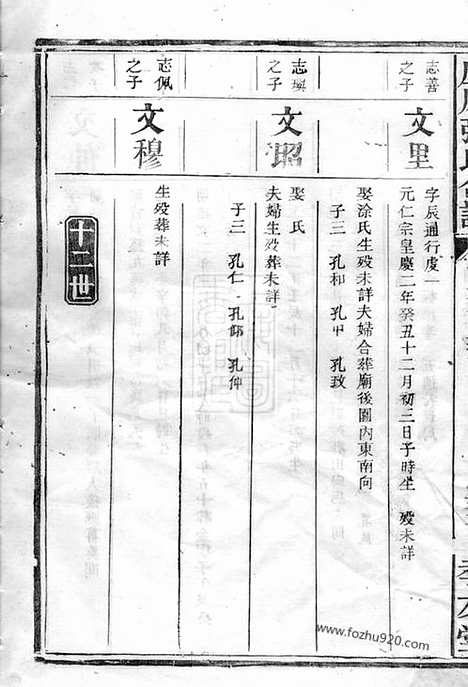 志善之子
文里
字辰通行虔一
元仁宗皇慶二年癸丑十二月初三日子時生 歿未詳
娶涂氏生歿未詳夫婦合葬廟後園內東南向
子三 孔和 孔中 孔致
之子
文昭
娶 氏
夫婦生歿葬未詳
子三 孔仁 孔仰 孔仲
志佩之子
文穆
生歿葬未詳
十二世
www.fozhu920.com